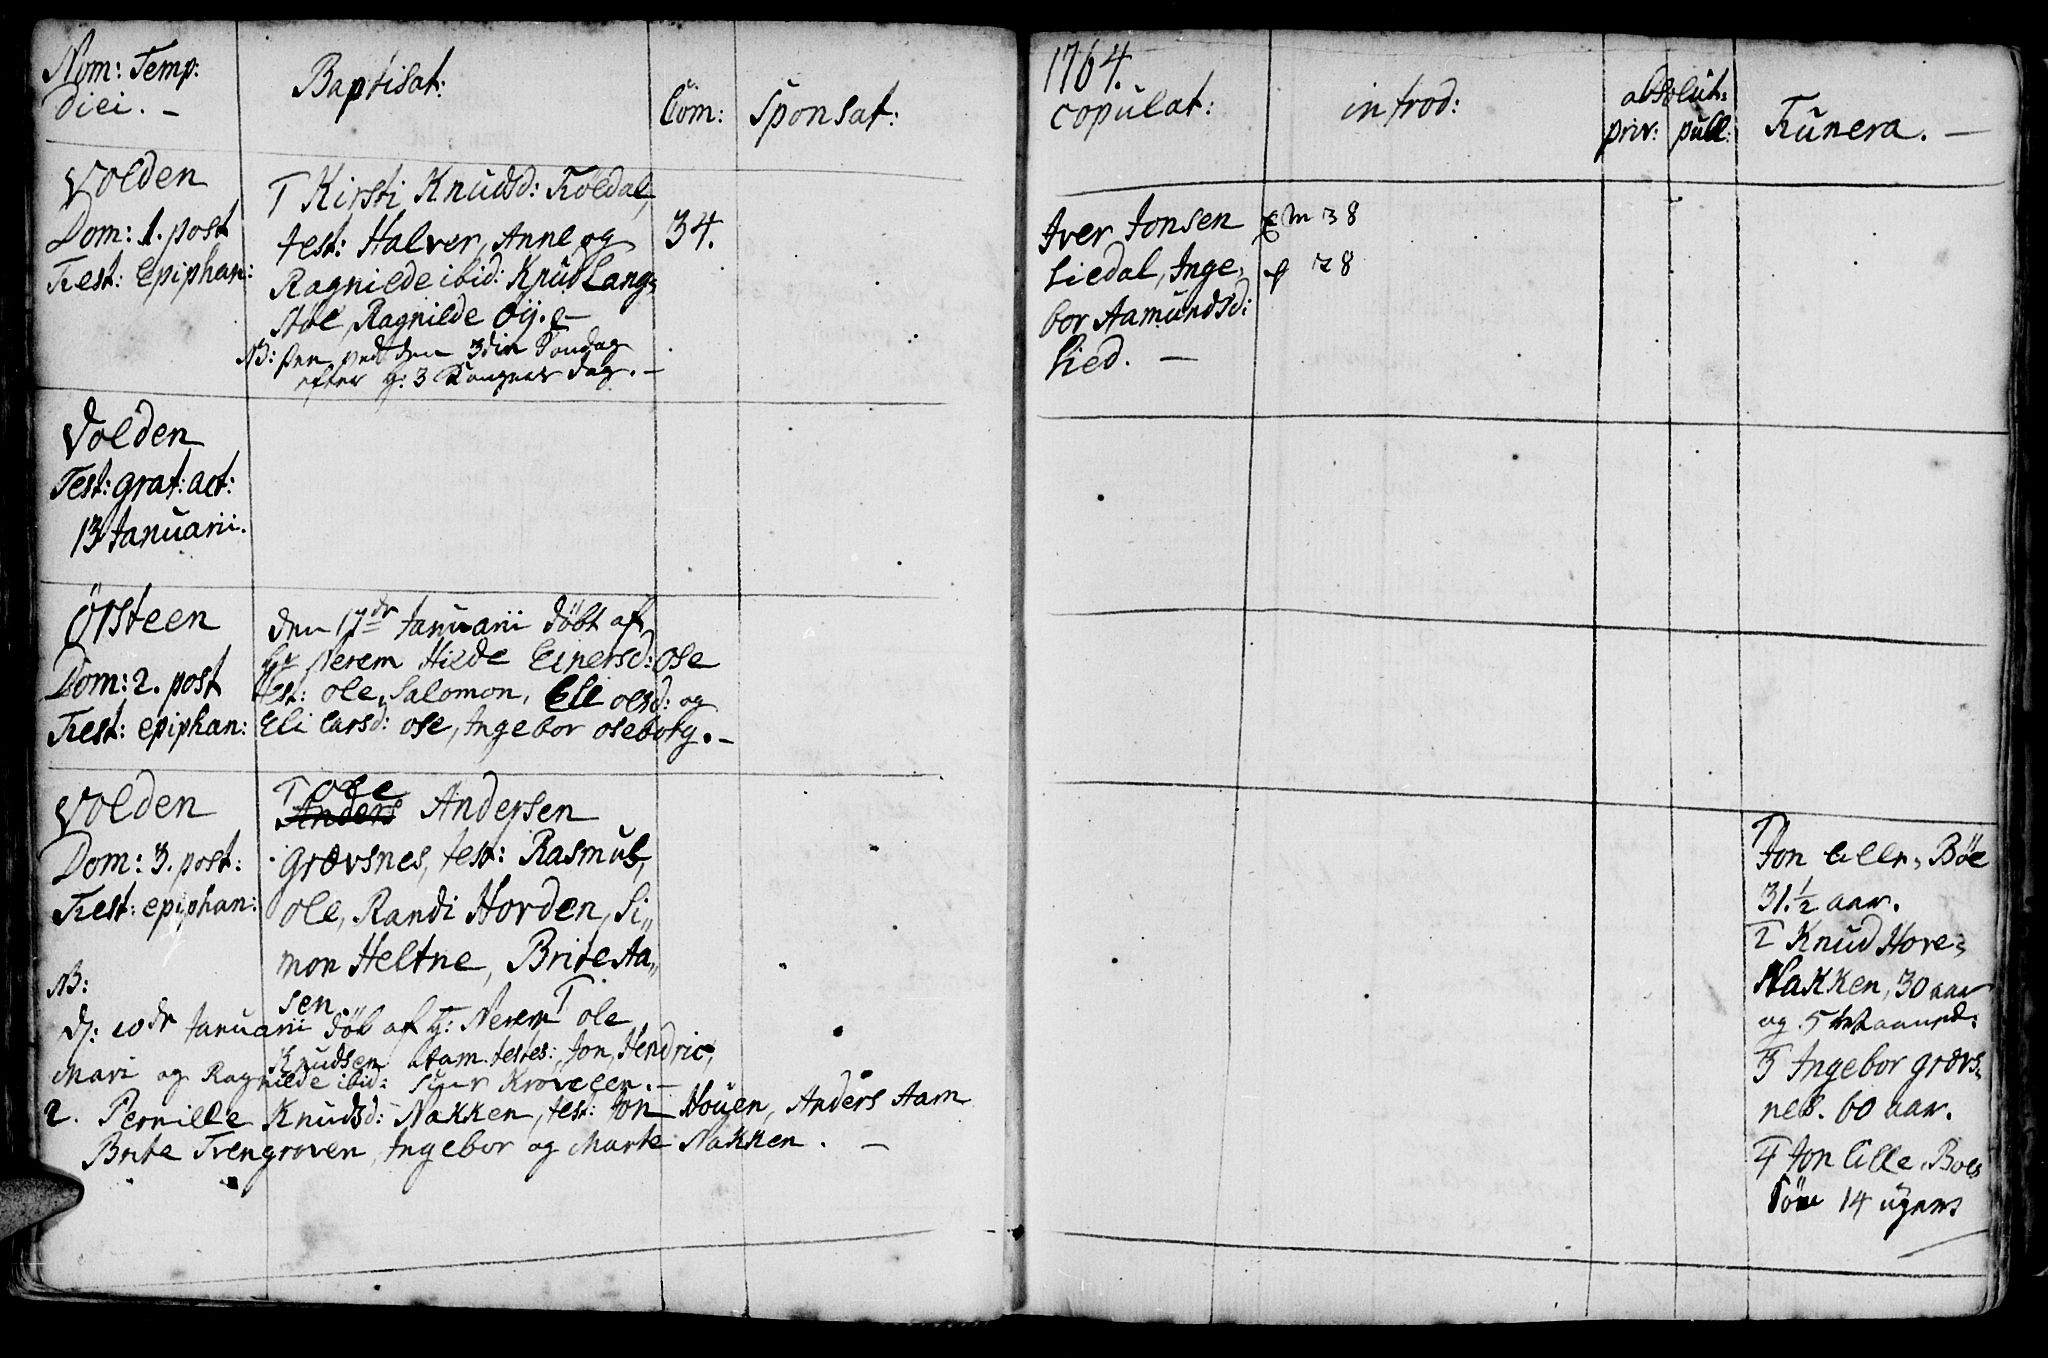 Nom: Temp:
Diei. –
Baptisat:
Com:
Sponsat:
Volden
Dom: 1. post
Fest: Epiphan:
1 Kirsti Knudsd: Foldal,
test: Halver, Anne og
Ragnilde ibid: Knud Lang=
støl, Ragnilde Øÿ.
NB: ved den 3die Søndag
efter H: 3 Konger dag. –
34.
Volden
Fest: grat: act:
13 Januarii.
Ørsteen
Dom: 2. post
Fest: epiphan:
den 17de Januarii döbt af
Hr Nerem Hilde Einersd: Ose
test: Ole, Salomon, Eli Olsd: og
Eli Larsd: Ose, Ingebor Oseborg. –
Volden
Dom: 3. post:
Fest: epiphan:
1 Ole
Anders Andersen
Grævsnes, test: Rasmus,
Ole, Randi Horden, Si=
mon Heltne, Brite Aa=
sen.
NB:
d: 20de Januarii döb af H: Nerem 1 Ole
Knudsen Aam testes: Jon, Hendric,
Mari og Ragnilde ibid: Siur Krøvelen. –
2. Pernille Knudsd: Nakken, test: Jon Houen, Anders Aam
Brite Trengroven, Ingebor og Marte Nakken. –
1764.
copulat:
introd:
absolut:
priv: publ:
Funera. –
Iver Jonsen
Liedal, Inge=
bor Aamundsd:
Lied. –
m 38
f 28
1 Jon Lille, Böe
31. ½ aar.
2 Knud Hove=
Nakken, 30 aar
og 5 Maaned:
3 Ingebor Grævs=
nes. 60 aar.
4 Jon Lille, Boes
Sön 14 ugers